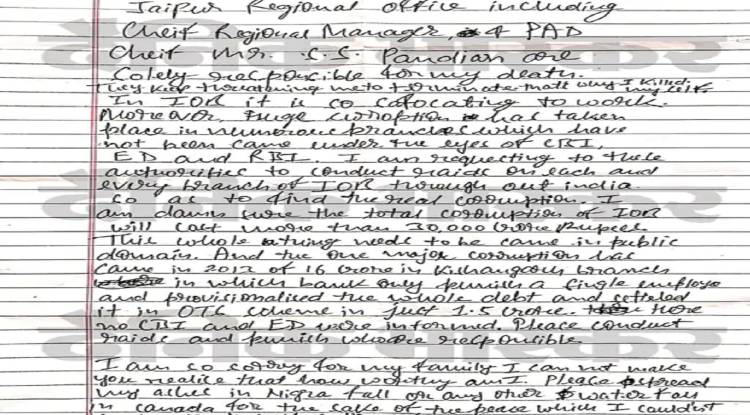 Jaipur Regional office including
Cheif Regional Manager, & 4 PAD
Cheif Mr. S.S. Pandian are
Solely responcible for my death.
They keep threatening me to terminate thats why I killed my self.
In IOB it is so sofocating to work.
Moreover, huge corroption has taken
place in numerous branches which have
not been came under the eyes of CBI,
ED and RBI. I am requesting to these
authorities to conduct raids on each and
every branch of IOB through out india
so as to find the real corrouption. I
am damn sure the total corroption of IOB
will cost more than 30,000 crore Rupees.
This whole thing needs to be came in public
domain. And the one major corroption has
came in 2012 of 16 crore in Kishangarh branch
in which bank only punish a single employe
and provisionalised the whole debt and setteled
it in OTS scheme in just 1.5 crore. Here
no CBI and ED were informed. Please conduct
raids and punish whoare responcible.
I am so sorry for my family I can not make
you realise that how worthy am I. Please spread
my ashes in Nigra fall or any other water fall
in canada for the sake of the peace which I couldn't
दैनिक भास्कर
दैनिक भास्कर
दैनिक भास्कर